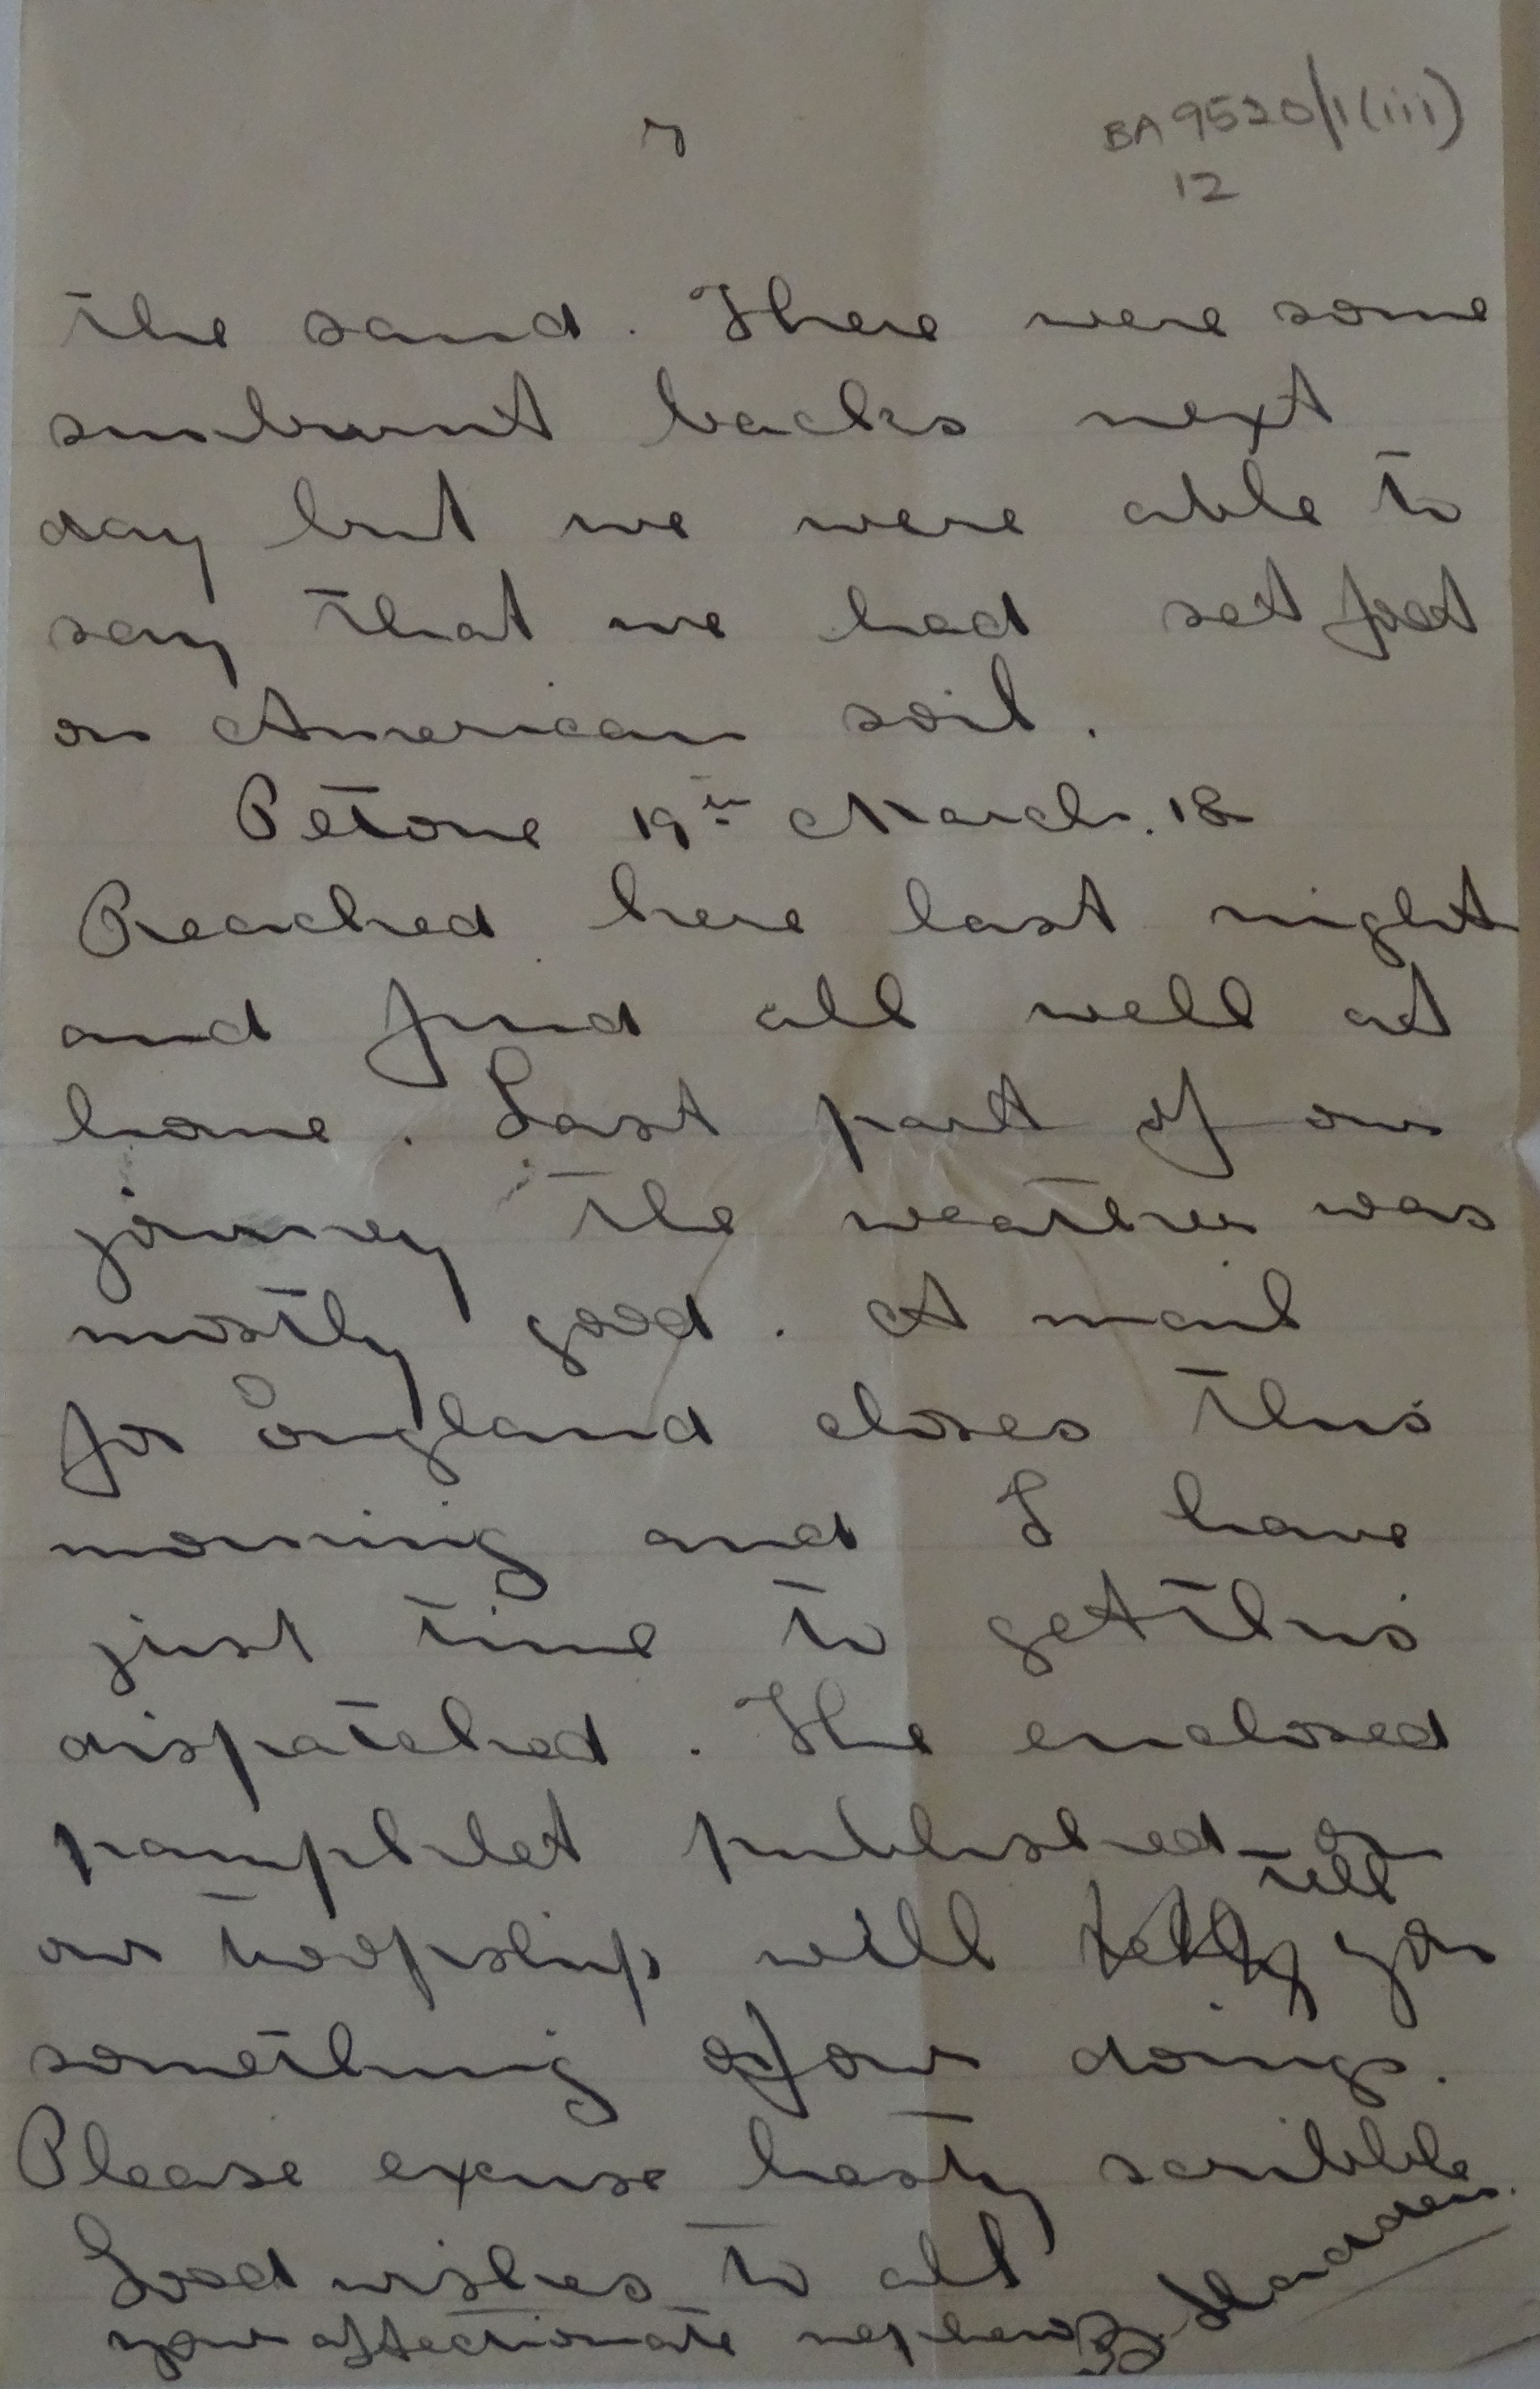 7
BA 9520/1(iii)
12
the sand. There were some
sunburnt backs next
day but we were able to
say that we had set foot
on American soil.
Petone 19th March. 18
Reached here last night
and find all well at
home. Last part of our
journey the weather was
mostly good. A mail
for England closes this
morning and I have
just time to get this
dispatched. The enclosed
pamphlet published on
tell
our troopship will you
something of our doings.
Please excuse hasty scribble
Good wishes to all
your affectionate nephew